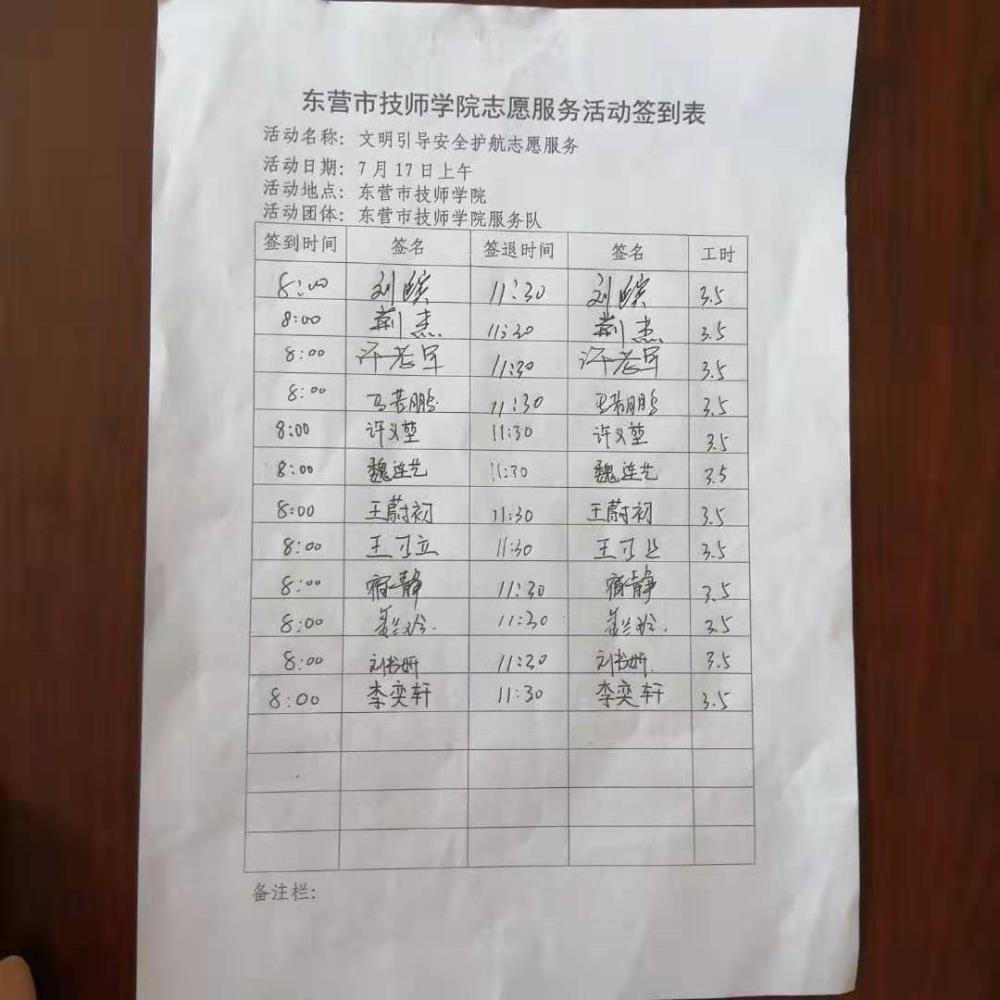 东营市技师学院志愿服务活动签到表
活动名称：文明引导安全护航志愿服务
活动日期：7月17日上午
活动地点：东营市技师学院
活动团体：东营市技师学院服务队
签到时间 签名 签退时间 签名 工时
8:00 刘 11:30 刘 3.5
8:00 荆杰 11:30 荆杰 3.5
8:00 许 11:30 许 3.5
8:00 马若鹏 11:30 马若鹏 3.5
8:00 许义堃 11:30 许义堃 3.5
8:00 魏连艺 11:30 魏连艺 3.5
8:00 王蔚初 11:30 王蔚初 3.5
8:00 王可立 11:30 王可立 3.5
8:00 宿静 11:30 宿静 3.5
8:00 11:30 3.5
8:00 刘书妍 11:30 刘书妍 3.5
8:00 李奕轩 11:30 李奕轩 3.5
备注栏：